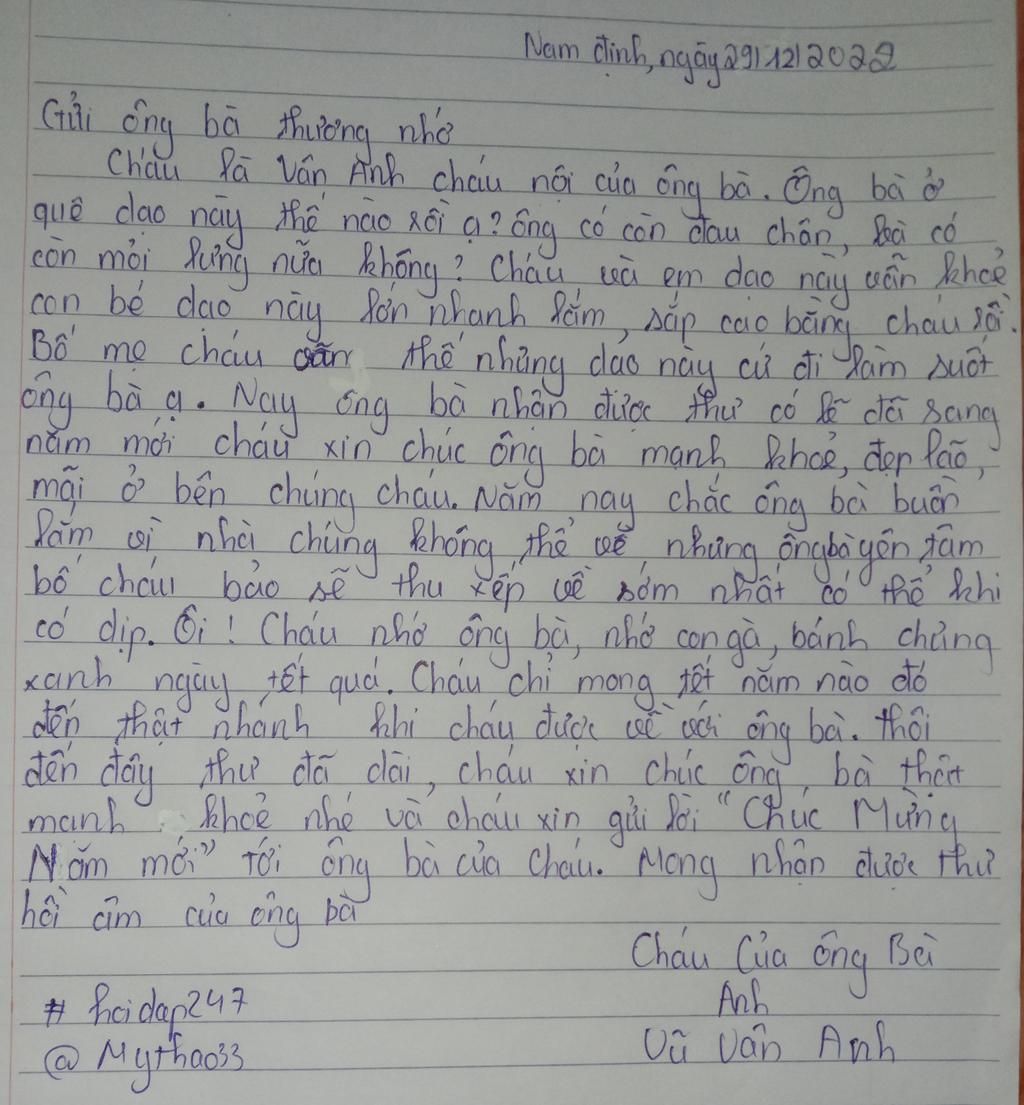 Nam định, ngày 29/12/2022
Gửi ông bà thương nhớ
Cháu là Vân Anh cháu nội của ông bà. Ông bà ở
quê dạo này thế nào rồi ạ? ông có còn đau chân, bà có
còn mỏi lưng nữa không? Cháu và em dạo này vẫn khoẻ
con bé dạo này lớn nhanh lắm, sắp cao bằng cháu rồi.
Bố mẹ cháu vẫn thế nhưng dạo này cứ đi làm suốt
ông bà ạ. Nay ông bà nhận được thư có lẽ đã sang
năm mới cháu xin chúc ông bà mạnh khoẻ, đẹp lão,
mãi ở bên chúng cháu. Năm nay chắc ông bà buồn
lắm vì nhà chúng không thể về nhưng ông bà yên tâm
bố cháu bảo sẽ thu xếp về sớm nhất có thể khi
có dịp. Ôi! Cháu nhớ ông bà, nhớ con gà, bánh chưng
xanh ngày tết quá. Cháu chỉ mong tết năm nào đó
đến thật nhanh khi cháu được về với ông bà. thôi
đến đây thư đã dài, cháu xin chúc ông, bà thật
mạnh khoẻ nhé và cháu xin gửi lời "Chúc Mừng
Năm mới" tới ông bà của cháu. Mong nhận được thư
hồi âm của ông bà
Cháu Của Ông Bà
Anh
Vũ Vân Anh
# hoidap247
@ Mythao33